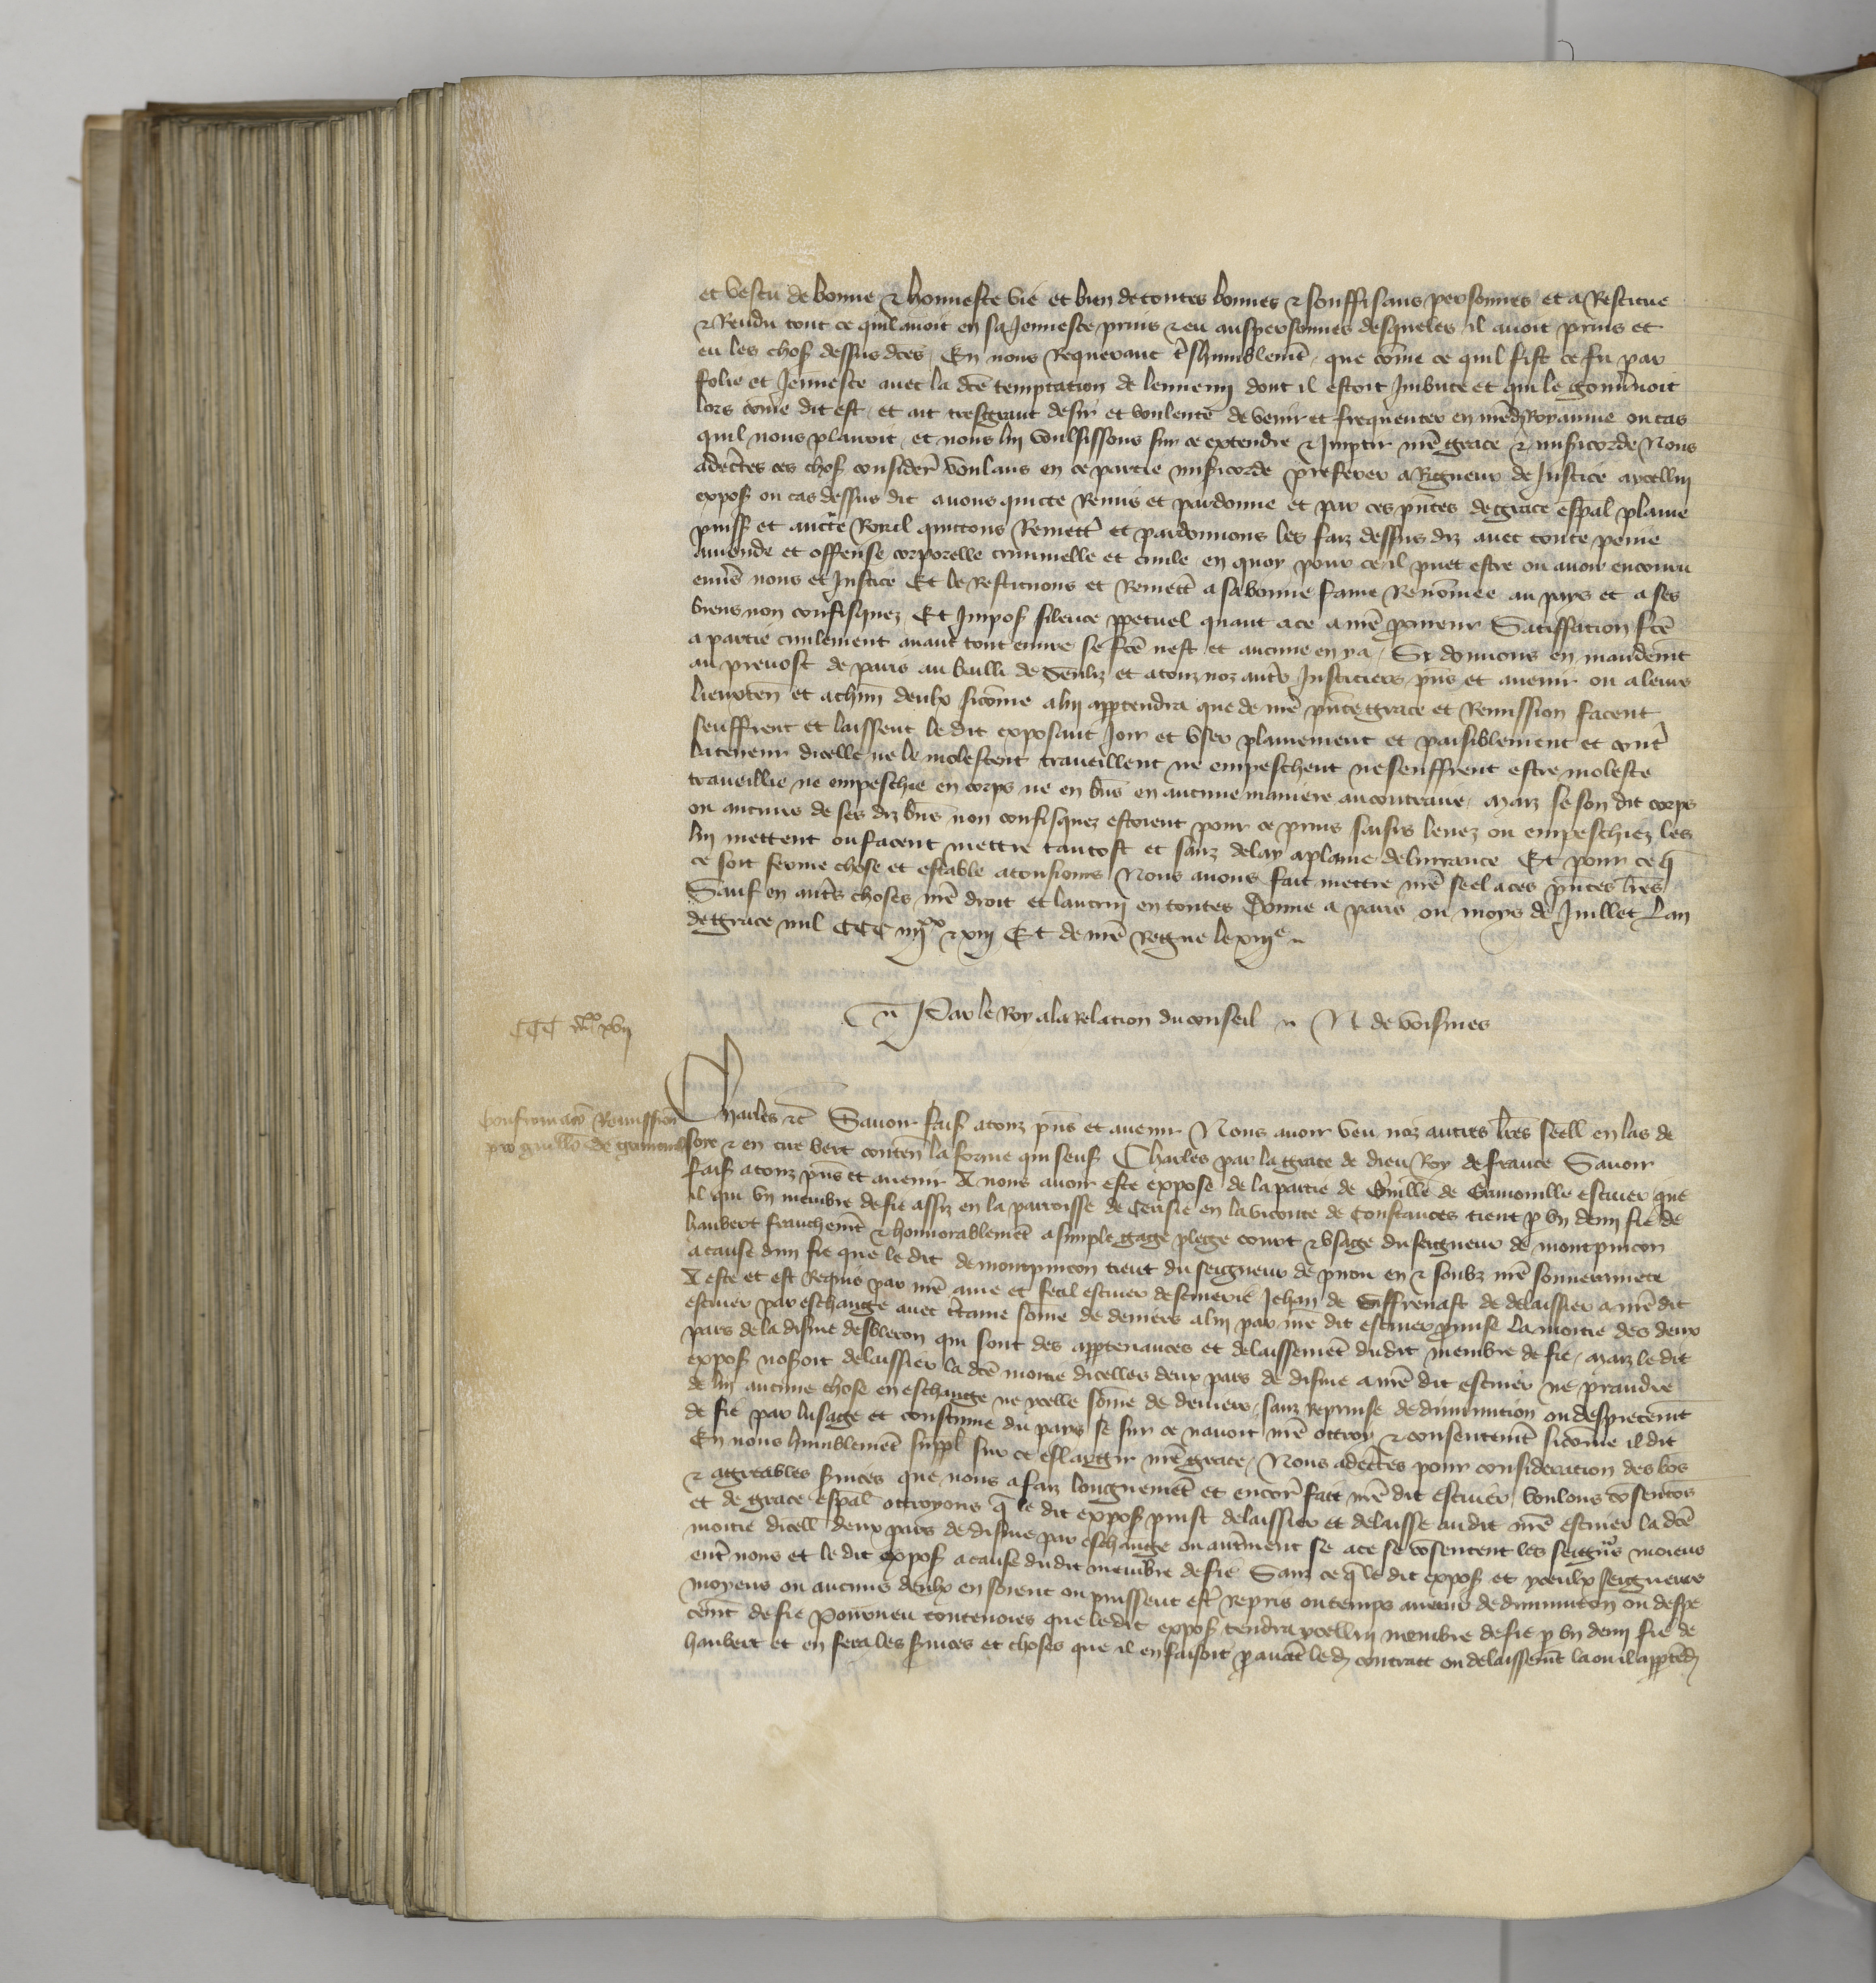 et vescu de bonne & honneste vie et bien de toutes bonnes & souffisans personnes et a Restitue
& Rendu tout ce quil auoit en sa Jeunesce prins & eu aus personnes desqueles il auoit prins et
eu les choses dessus dces En nous Requerant tshumblemt que come ce quil fist ce fu par
folie et Jeunesce auec la dce temptacion de lennemy dont il estoit Imbute et qui le gouunoit
lors come dit est et ait tresgrant desir et voulente de venir et frequenter en nred Royaume ou cas
quil nous plairoit et nous luy voulsissons sur ce extendre & Impartir nre grace & misicorde Nous
adectes ces choses considere voulans en ce partie misicorde preferer a Rigueur de Justice a ycelluy
expos ou cas dessus dit auons quicte Remis et pardonne et par ces pntes de grace espal plaine
puiss et aucte Royal quittons Remett et pardonnons les faiz dessus diz auec toute peine
amende et offense corporelle criminelle et ciuile en quoy pour ce il puet estre ou auoir encouru
enuers nous et Justice Et le Restituons et Remett a sa bonne fame Renomee au pays et a ses
biens non confisquez Et Impos silence ppetuel quant a ce a nre procureur Satisfacion fce
a partie ciuilement auant tout euure se fce nest et aucune en ya Sy donnons en mandemt
au preuost de paris au bailli de Senliz et a touz noz autres Justiciers pns et auenir ou a leurs
lieuxten et a chun deulx sicome a luy apptendra que de nre pnte grace et Remission facent
seuffrent et laissent le dit exposant Joir et vser plainement et paisiblement et contre
la teneur dicelle ne le molestent traueillent ne empeschent ne seuffrent estre moleste
traueillie ne empeschie en corps ne en bns en aucune maniere au contraire Maiz se son dit corps
ou aucuns de ses diz bns non confisquez estoient pour ce prins saisis leuez ou empeschiez les
luy mettent ou facent mettre tantost et sanz delay a plaine deliurance Et pour ce q
ce soit ferme chose et estable a tousiours Nous auons fait mettre nre seel a ces pntes lres
Sauf en autres choses nre droit et lautruy en toutes Donne a paris ou moys de Juillet Lan
de grace mil CCC iiijxx & xiij Et de nre Regne le xiije
Par le Roy a la Relacion du conseil N de voisines
CCC iiijxx xvij
Confirmacio Remission
pro guillo de gramouil
Charles &c Sauoir faiss a touz pns et auenir Nous auoir veu noz autres lres seell en las de
soye & en cire vert conten la forme qui senss Charles par la grace de dieu Roy de france Sauoir
faiss a touz pns et auenir A nous auoir este expose de la partie de Guille de Grimouille escuier que
il qui vn membre de fie assiz en la parroisse de Cerisie en la viconte de Constances tient p vn demj fie de
haubert franchemt & honnorablemt a simple gage plege court & vsage du seigneur de montpincon
a cause dun fie que le dit de montpincon tient du seigneur de en & soubz nre souuerainete
A este et est Requis par nre ame et feal escuier descuierie Jehan de Giffrenast de delaissier a nre dit
escuier par eschange auec ctaine some de deniers a luy par nre dit escuier promise La moitie des deux
pars de la disme qui sont des apptenances et delaissemt dudit membre de fie Maiz le dit
expos nosoit delaissier la dce moitie dicelles deux pars de disme a nre dit escuier ne prandre
de luy aucune chose en eschange ne ycelle some de deniers sanz Reprinse de diminucion ou despiecemt
de fie par lusage et coustume du pays se sur ce nauoit nre ottroy & consentemt sicome il dit
En nous humblemt suppl sur ce eslargir nre grace Nous adectes pour consideracion des bos
& agreables seruices que nous a faiz longuemt et encore fait nre dit escuier voulons cosentos
et de grace espal ottroyons q le dit expos puist delaissier et delaisse audit nre escuier la dce
moitie dicell deux pars de disme par eschange ou autrement se a ce se cosentent les seigneurs moiens
entre nous et le dit expos a cause dudit membre de fie Sanz ce q le dit expos et yceulx seigneurs
moyens ou aucuns deulx en soient ou puissent estre Repris ou temps auenir de diminucion ou despie
cemt de fie Pourueu toutesuoies que le dit expos tendra ycelluy membre de fie p vn demj fie de
haubert et en fera les seruices et choses que il en faisoit p auant le d contract ou delaissemt la ou il apptend